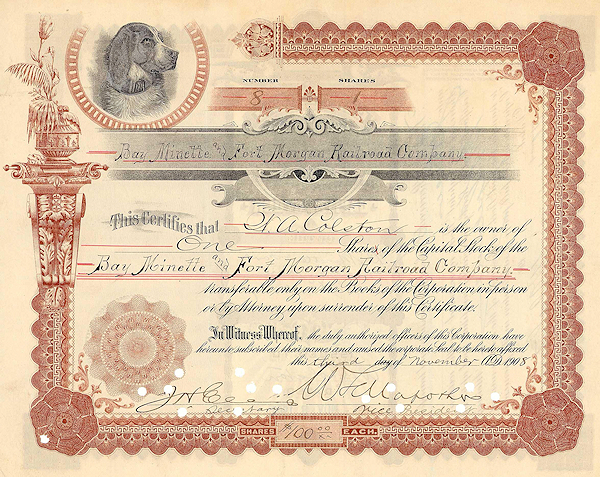 NUMBER SHARES
8
Bay Minette and Fort Morgan Railroad Company.
This Certifies that A Colston is the owner of
One Shares of the Capital Stock of the
Bay Minette and Fort Morgan Railroad Company.
transferable only on the Books of the Corporation in person
or by Attorney upon surrender of this Certificate.
In Witness Whereof, the duly authorized officers of this Corporation have
hereunto subscribed their names and caused the corporate Seal to be hereto affixed
this third day of November A.D. 1908
Secretary Vice President
SHARES $100.00 EACH.